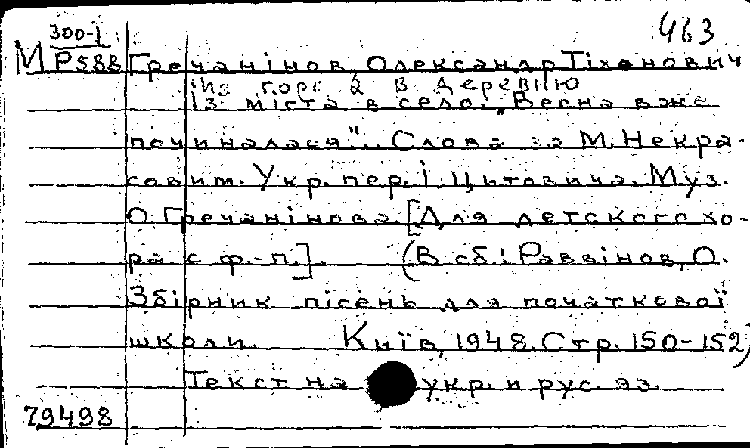 463
300-1
М Р588 Гречанінов, Олександр Тіханович
Из города в деревню
Із міста в село: „Весна вже
починалася". Слова за М. Некра-
совим. Укр. пер. І. Цитовича. Муз.
О. Гречанінова. [Для детского хо-
ра с ф.-п.]. (В сб.: Раввінов, О.
Збірник пісень для початкової
школи. Київ, 1948. Стр. 150-152)
Текст на укр. и рус. яз.
79498